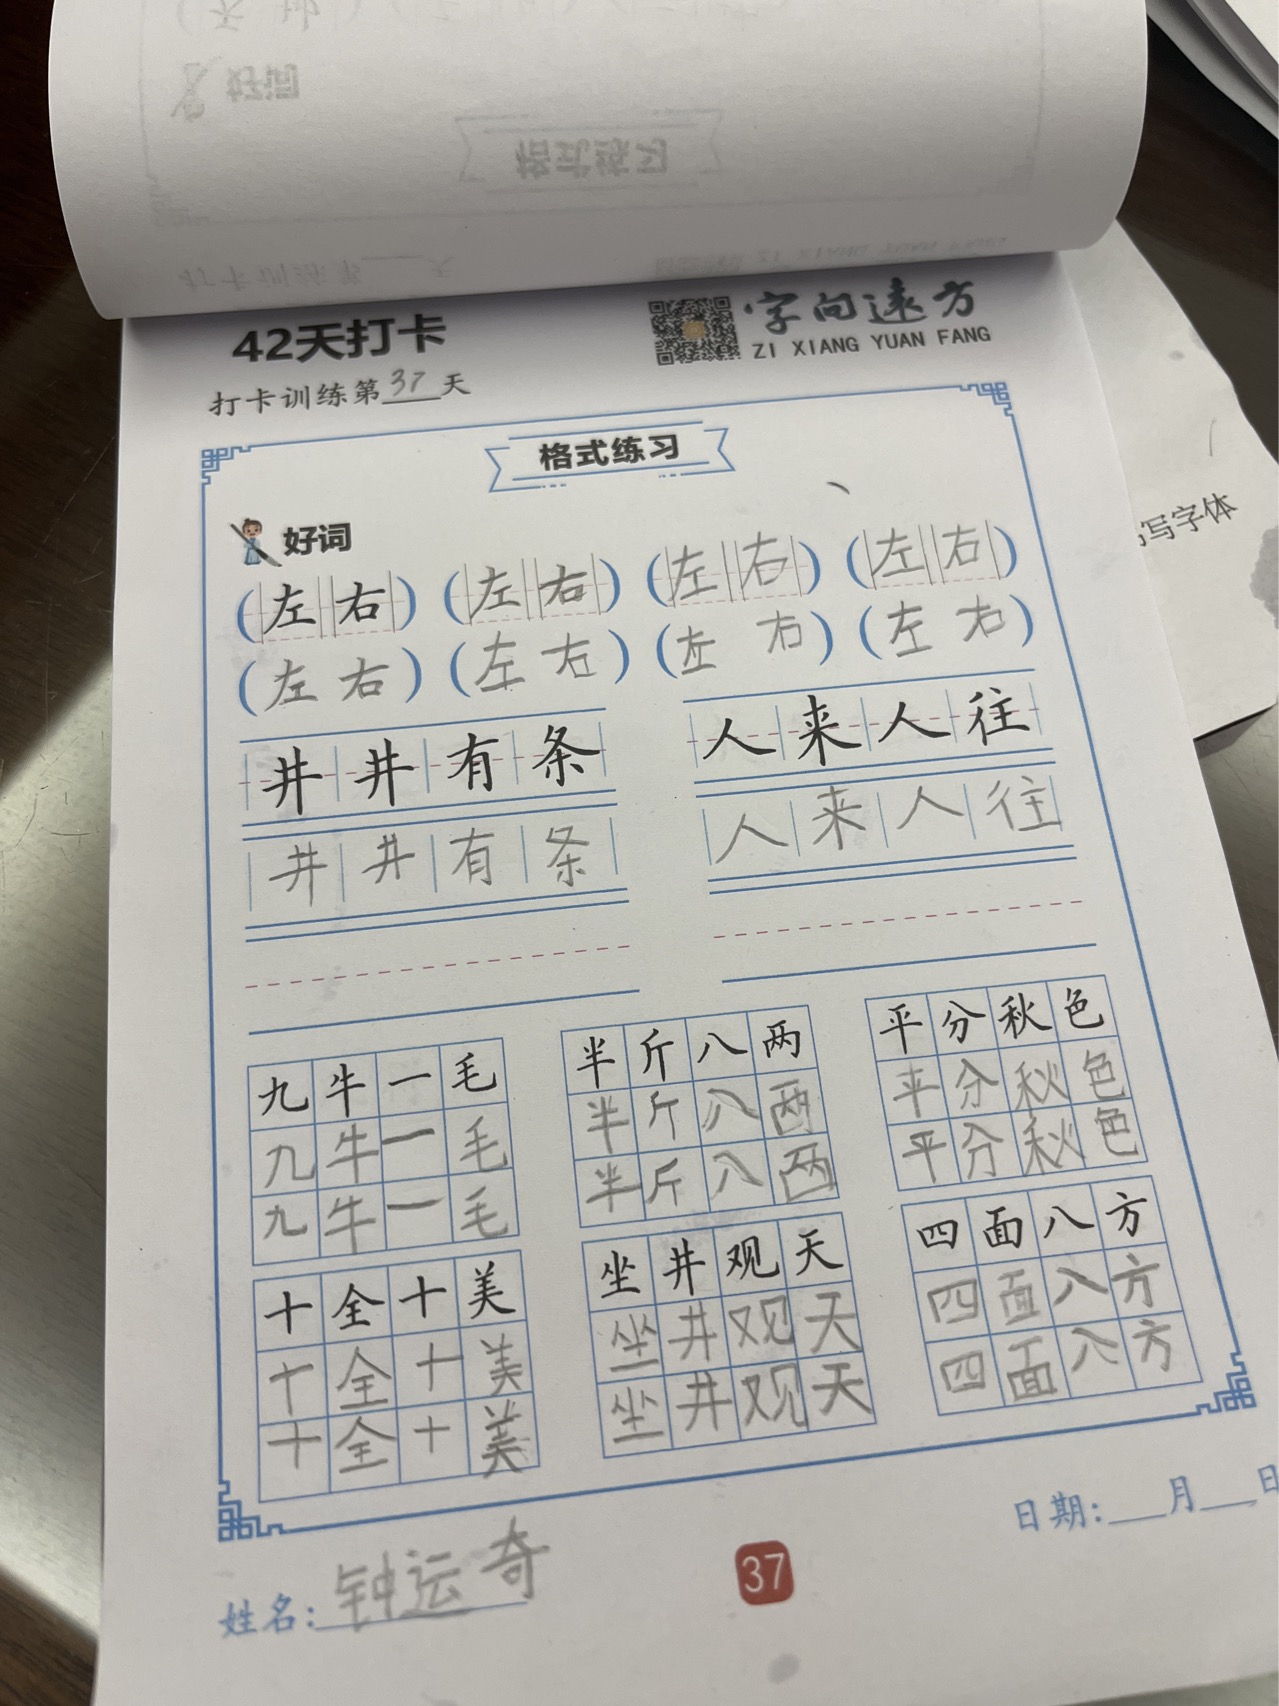 好词
格式练习
打卡训练第___天
42天打卡
字向远方
ZI XIANG YUAN FANG
打卡训练第37天
格式练习
写字体
好词
(左右) (左右) (左右) (左右)
(左右) (左右) (左右) (左右)
井井有条 人来人往
井井有条 人来人往
九牛一毛 半斤八两 平分秋色
九牛一毛 半斤八两 平分秋色
九牛一毛 半斤八两 平分秋色
十全十美 坐井观天 四面八方
十全十美 坐井观天 四面八方
十全十美 坐井观天 四面八方
日期:___月___日
姓名:钟运奇
37